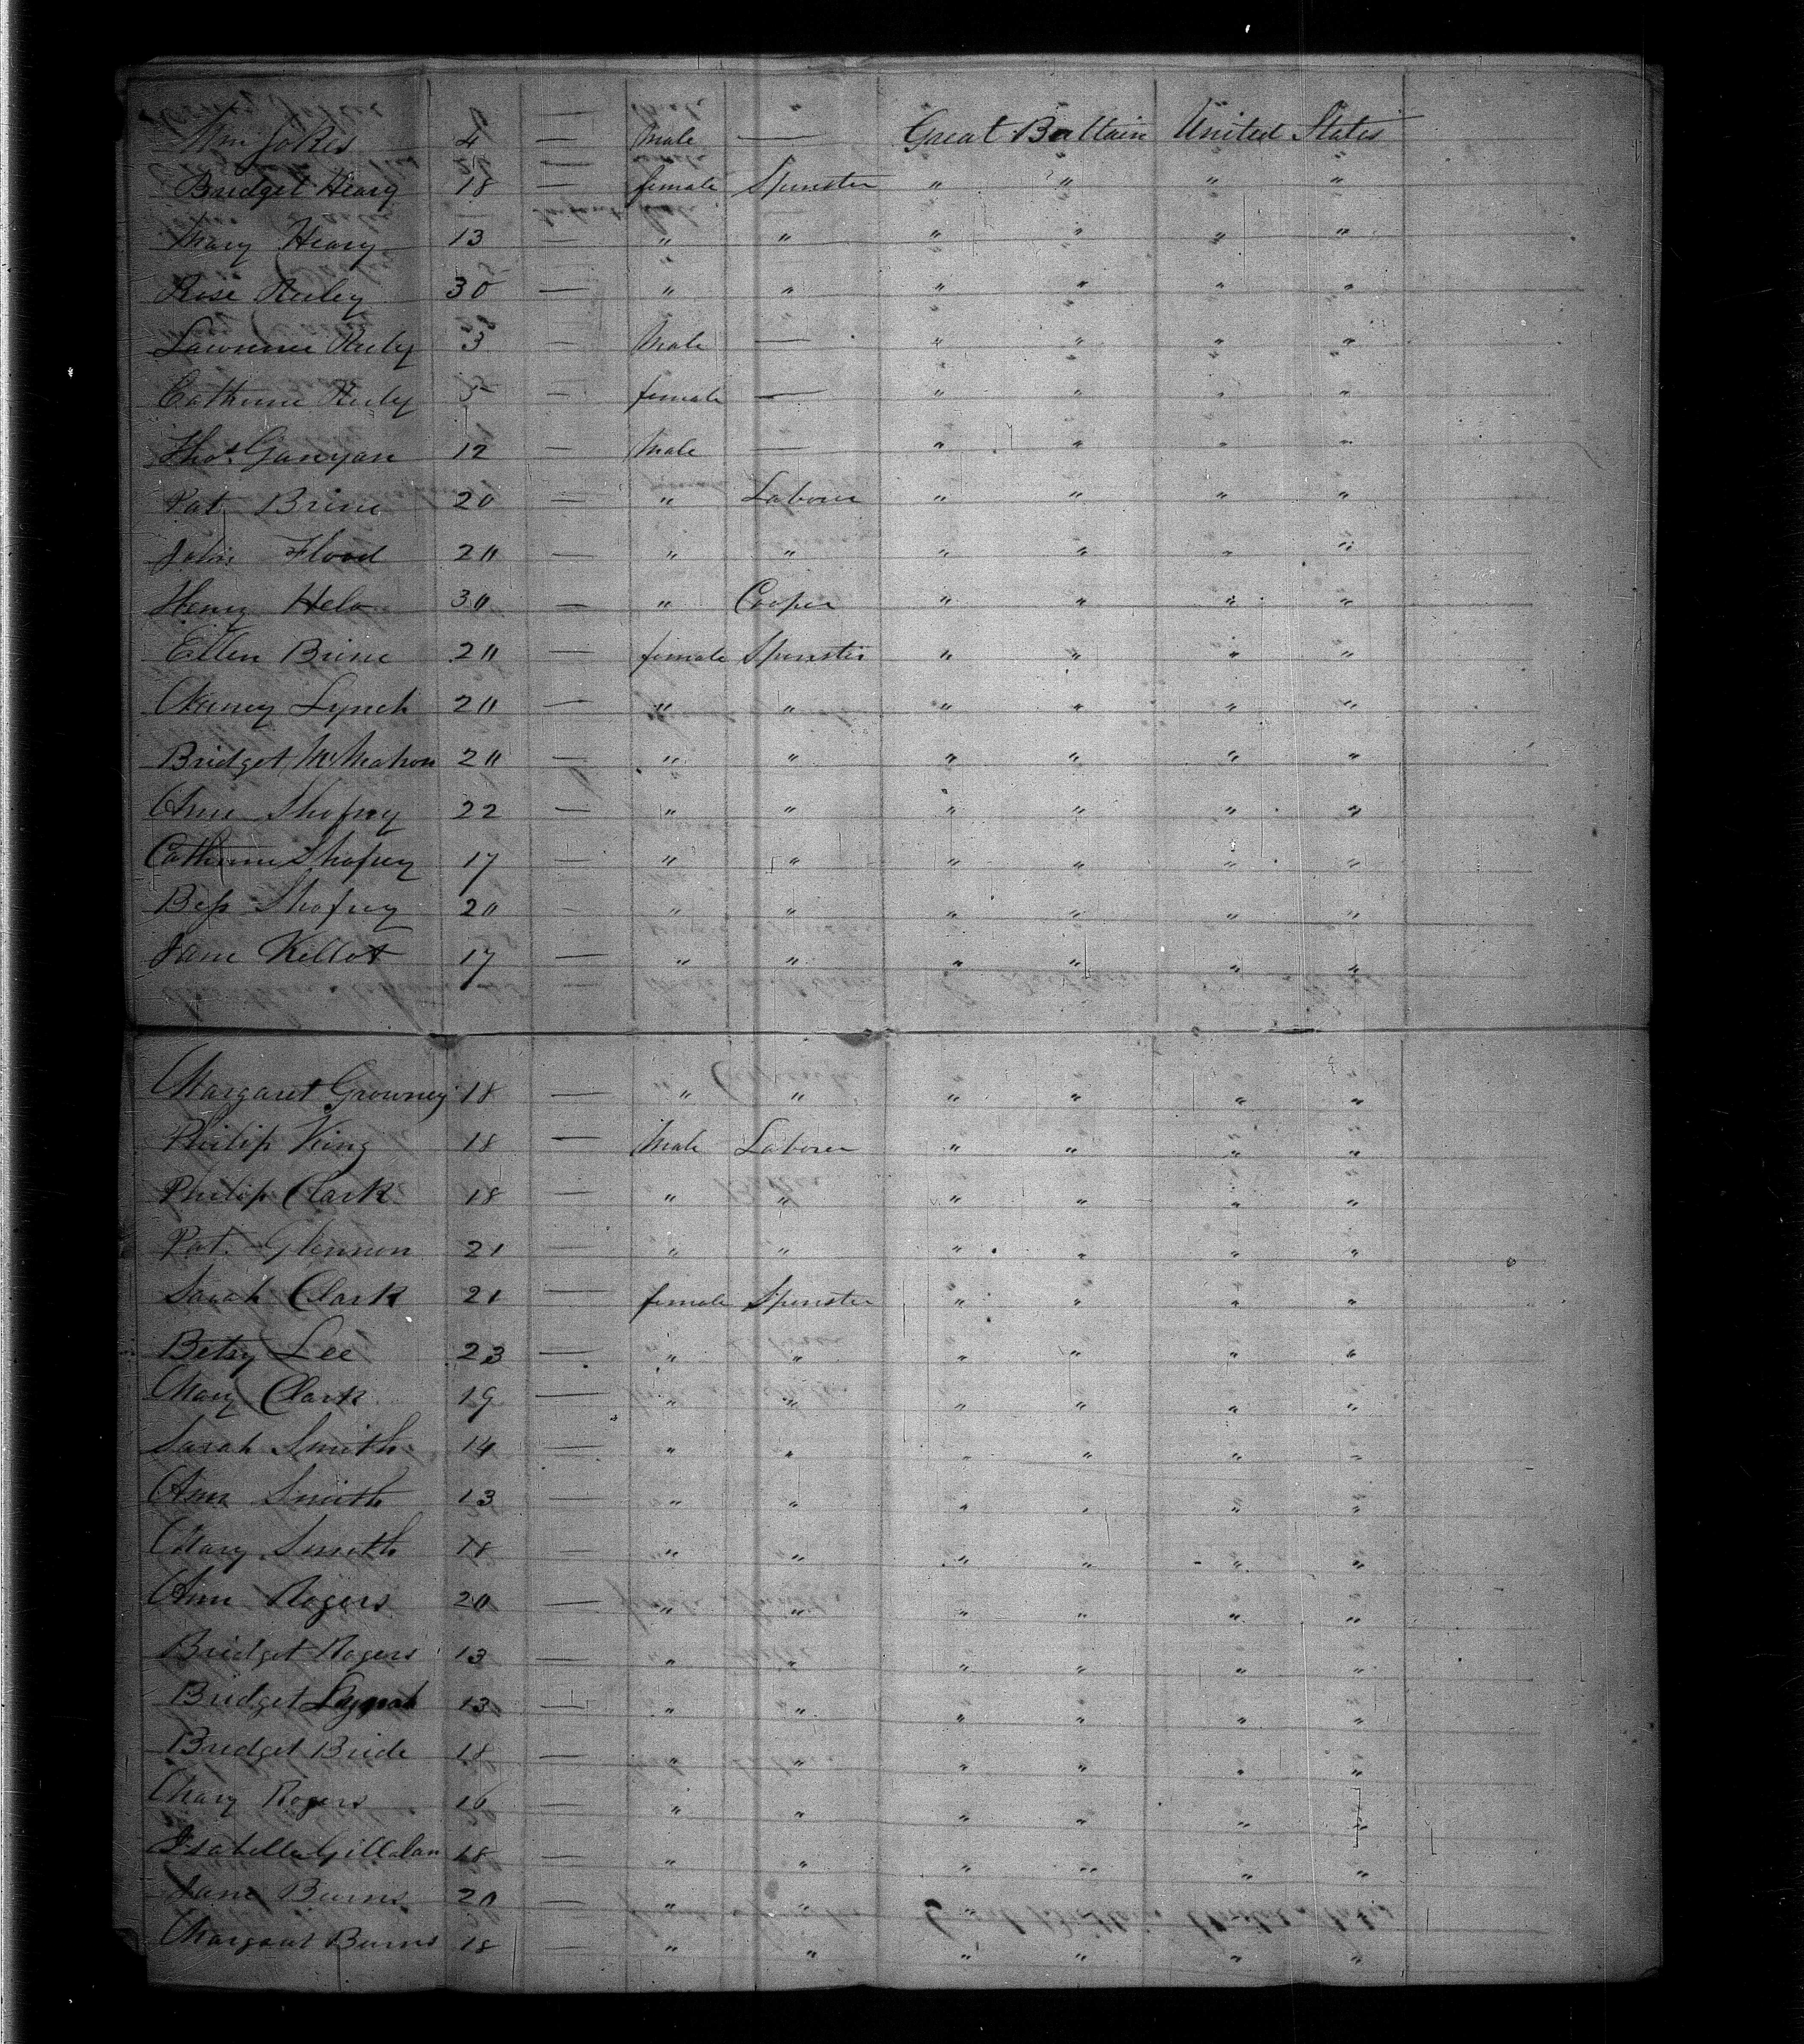 Wm Jokes 4 — Male — Great Brittain United States
Bridget Heary 18 — female Spinster " " " "
Mary Heary 13 — " " " " " "
Rose Reiley 30 — " " " " " "
Lawrence Reily 3 — Male — " " " "
Catherine Reily 5 — female — " " " "
Thos. Gunyan 12 — Male — " " " "
Pat. Brine 20 — " Laborer " " " "
John Flood 20 — " " " " " "
Henry Helo 30 — " Cooper " " " "
Ellen Brine 20 — female Spinster " " " "
Nancy Lynch 20 — " " " " " "
Bridget McMahon 20 — " " " " " "
Ann Shofrey 22 — " " " " " "
Catherine Shofrey 17 — " " " " " "
Bess Shofrey 20 — " " " " " "
Jane Kellot 17 — " " " " " "
Margaret Growney 18 — " " " " " "
Philip King 18 — Male Laborer " " " "
Philip Clark 18 — " " " " " "
Pat. Glennon 21 — " " " " " "
Sarah Clark 21 — female Spinster " " " "
Betsy Lee 23 — " " " " " "
Mary Clark 19 — " " " " " "
Sarah Smith 14 — " " " " " "
Ann Smith 13 — " " " " " "
Mary Smith 18 — " " " " " "
Ann Rogers 20 — " " " " " "
Bridget Rogers 13 — " " " " " "
Bridget Lynch 13 — " " " " " "
Bridget Bride 18 — " " " " " "
Mary Rogers 16 — " " " " " "
Isabella Gillolan 18 — " " " " " "
Jane Burns 20 — " " " " " "
Margaret Burns 18 — " " " " " "